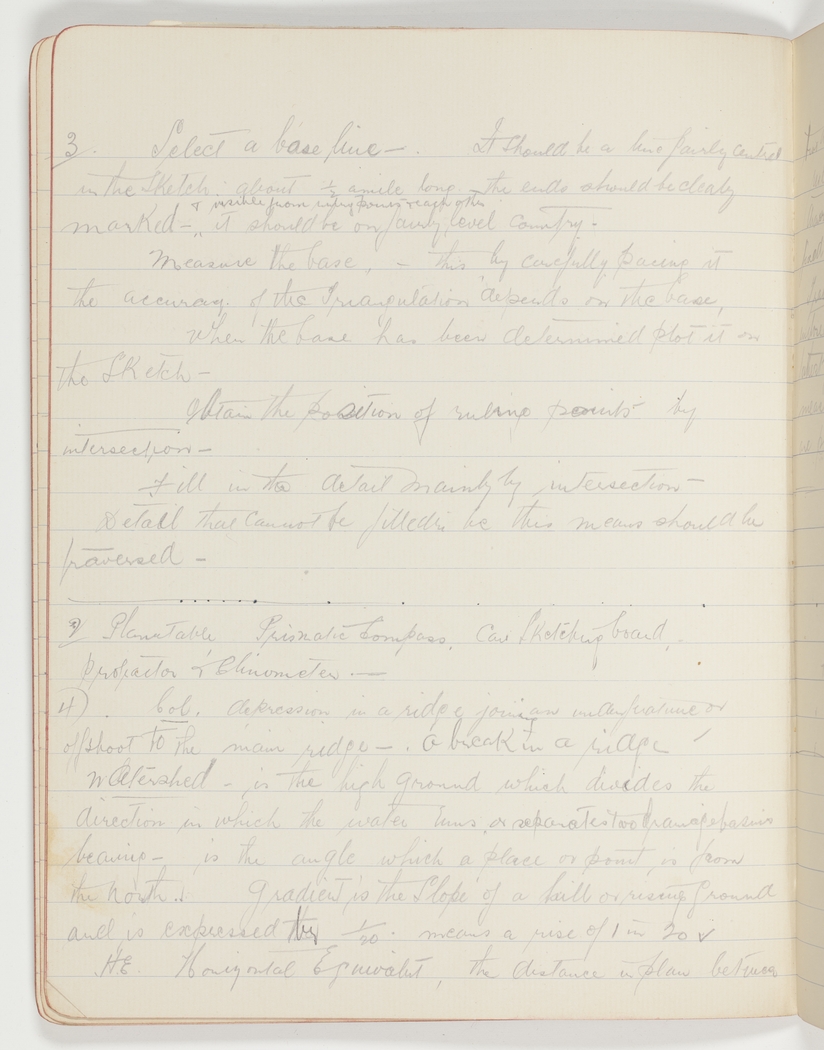 3. Select a base line - . It should be a line fairly central
in the Sketch. about 1/2 a mile long - the ends should be clearly
& visible from ruling points & each other
marked - it should be on fairly level country -
Measure the base, - this by carefully pacing it
the accuracy of the Triangulation depends on the base,
When the base has been determined plot it on
the Sketch -
Obtain the position of ruling points by
intersection -
Fill in the detail mainly by intersection -
Detail that cannot be filled in be this means should be
traversed -
2/ Planetable Prismatic Compass. Cav Sketching board.
protractor & Clinometer. -
4) . Col. depression in a ridge joining an or
offshoot to the main ridge - . a break in a ridge
Watershed - is the high ground which divides the
direction in which the water runs, or separates two drainage basins
bearing - is the angle which a place or point is from
the north. Gradient is the Slope of a hill or rising Ground
and is expressed by 1/20. means a rise of 1 in 20
HE. Horizontal Equivalent, the distance in plan between